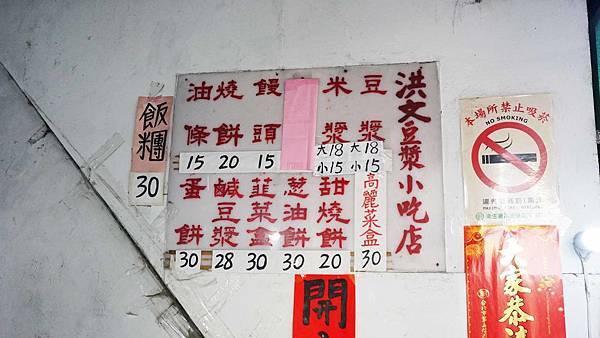 洪文豆漿小吃店
豆漿
大18
小15
米漿
大18
小15
饅頭
15
燒餅
20
油條
15
高麗菜盒
30
甜燒餅
20
蔥油餅
30
韮菜盒
30
鹹豆漿
28
蛋餅
30
飯糰
30
本場所禁止吸菸
NO SMOKING
開
大家恭